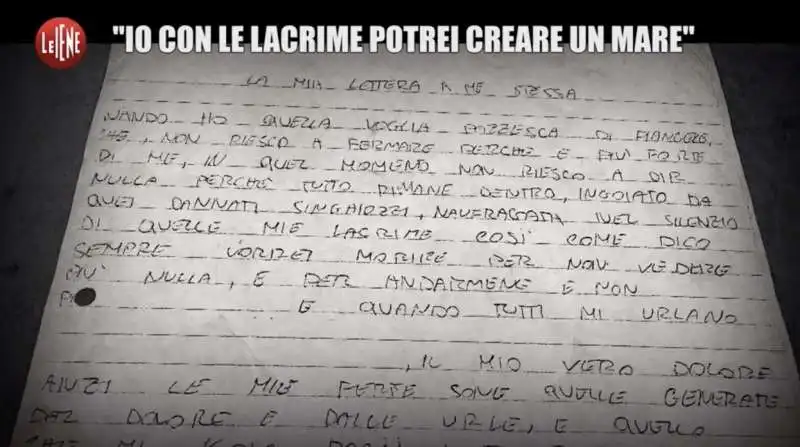 LE IENE
"IO CON LE LACRIME POTREI CREARE UN MARE"
LA MIA LETTERA A ME STESSA
UANDO HO QUELLA VOGLIA PAZZESCA DI PIANGERE,
CHE, NON RIESCO A FERMARE PERCHÈ È PIÙ FORTE
DI ME, IN QUEL MOMENO NON RIESCO A DIR
NULLA PERCHÈ TUTTO RIMANE DENTRO, INGOIATO DA
QUEI DANNATI SINGHIOZZI, NAUFRAGATA NEL SILENZIO
DI QUELLE MIE LACRIME COSÌ COME DICO
SEMPRE VORREI MORIRE PER NON VEDERE
PIÙ NULLA, E PER ANDARMENE E NON
E QUANDO TUTTI MI URLANO
, IL MIO VERO DOLORE
ANZI LE MIE FERITE SONO QUELLE GENERATE
DAL DOLORE E DALLE URLA, E QUELLO
CHE MI